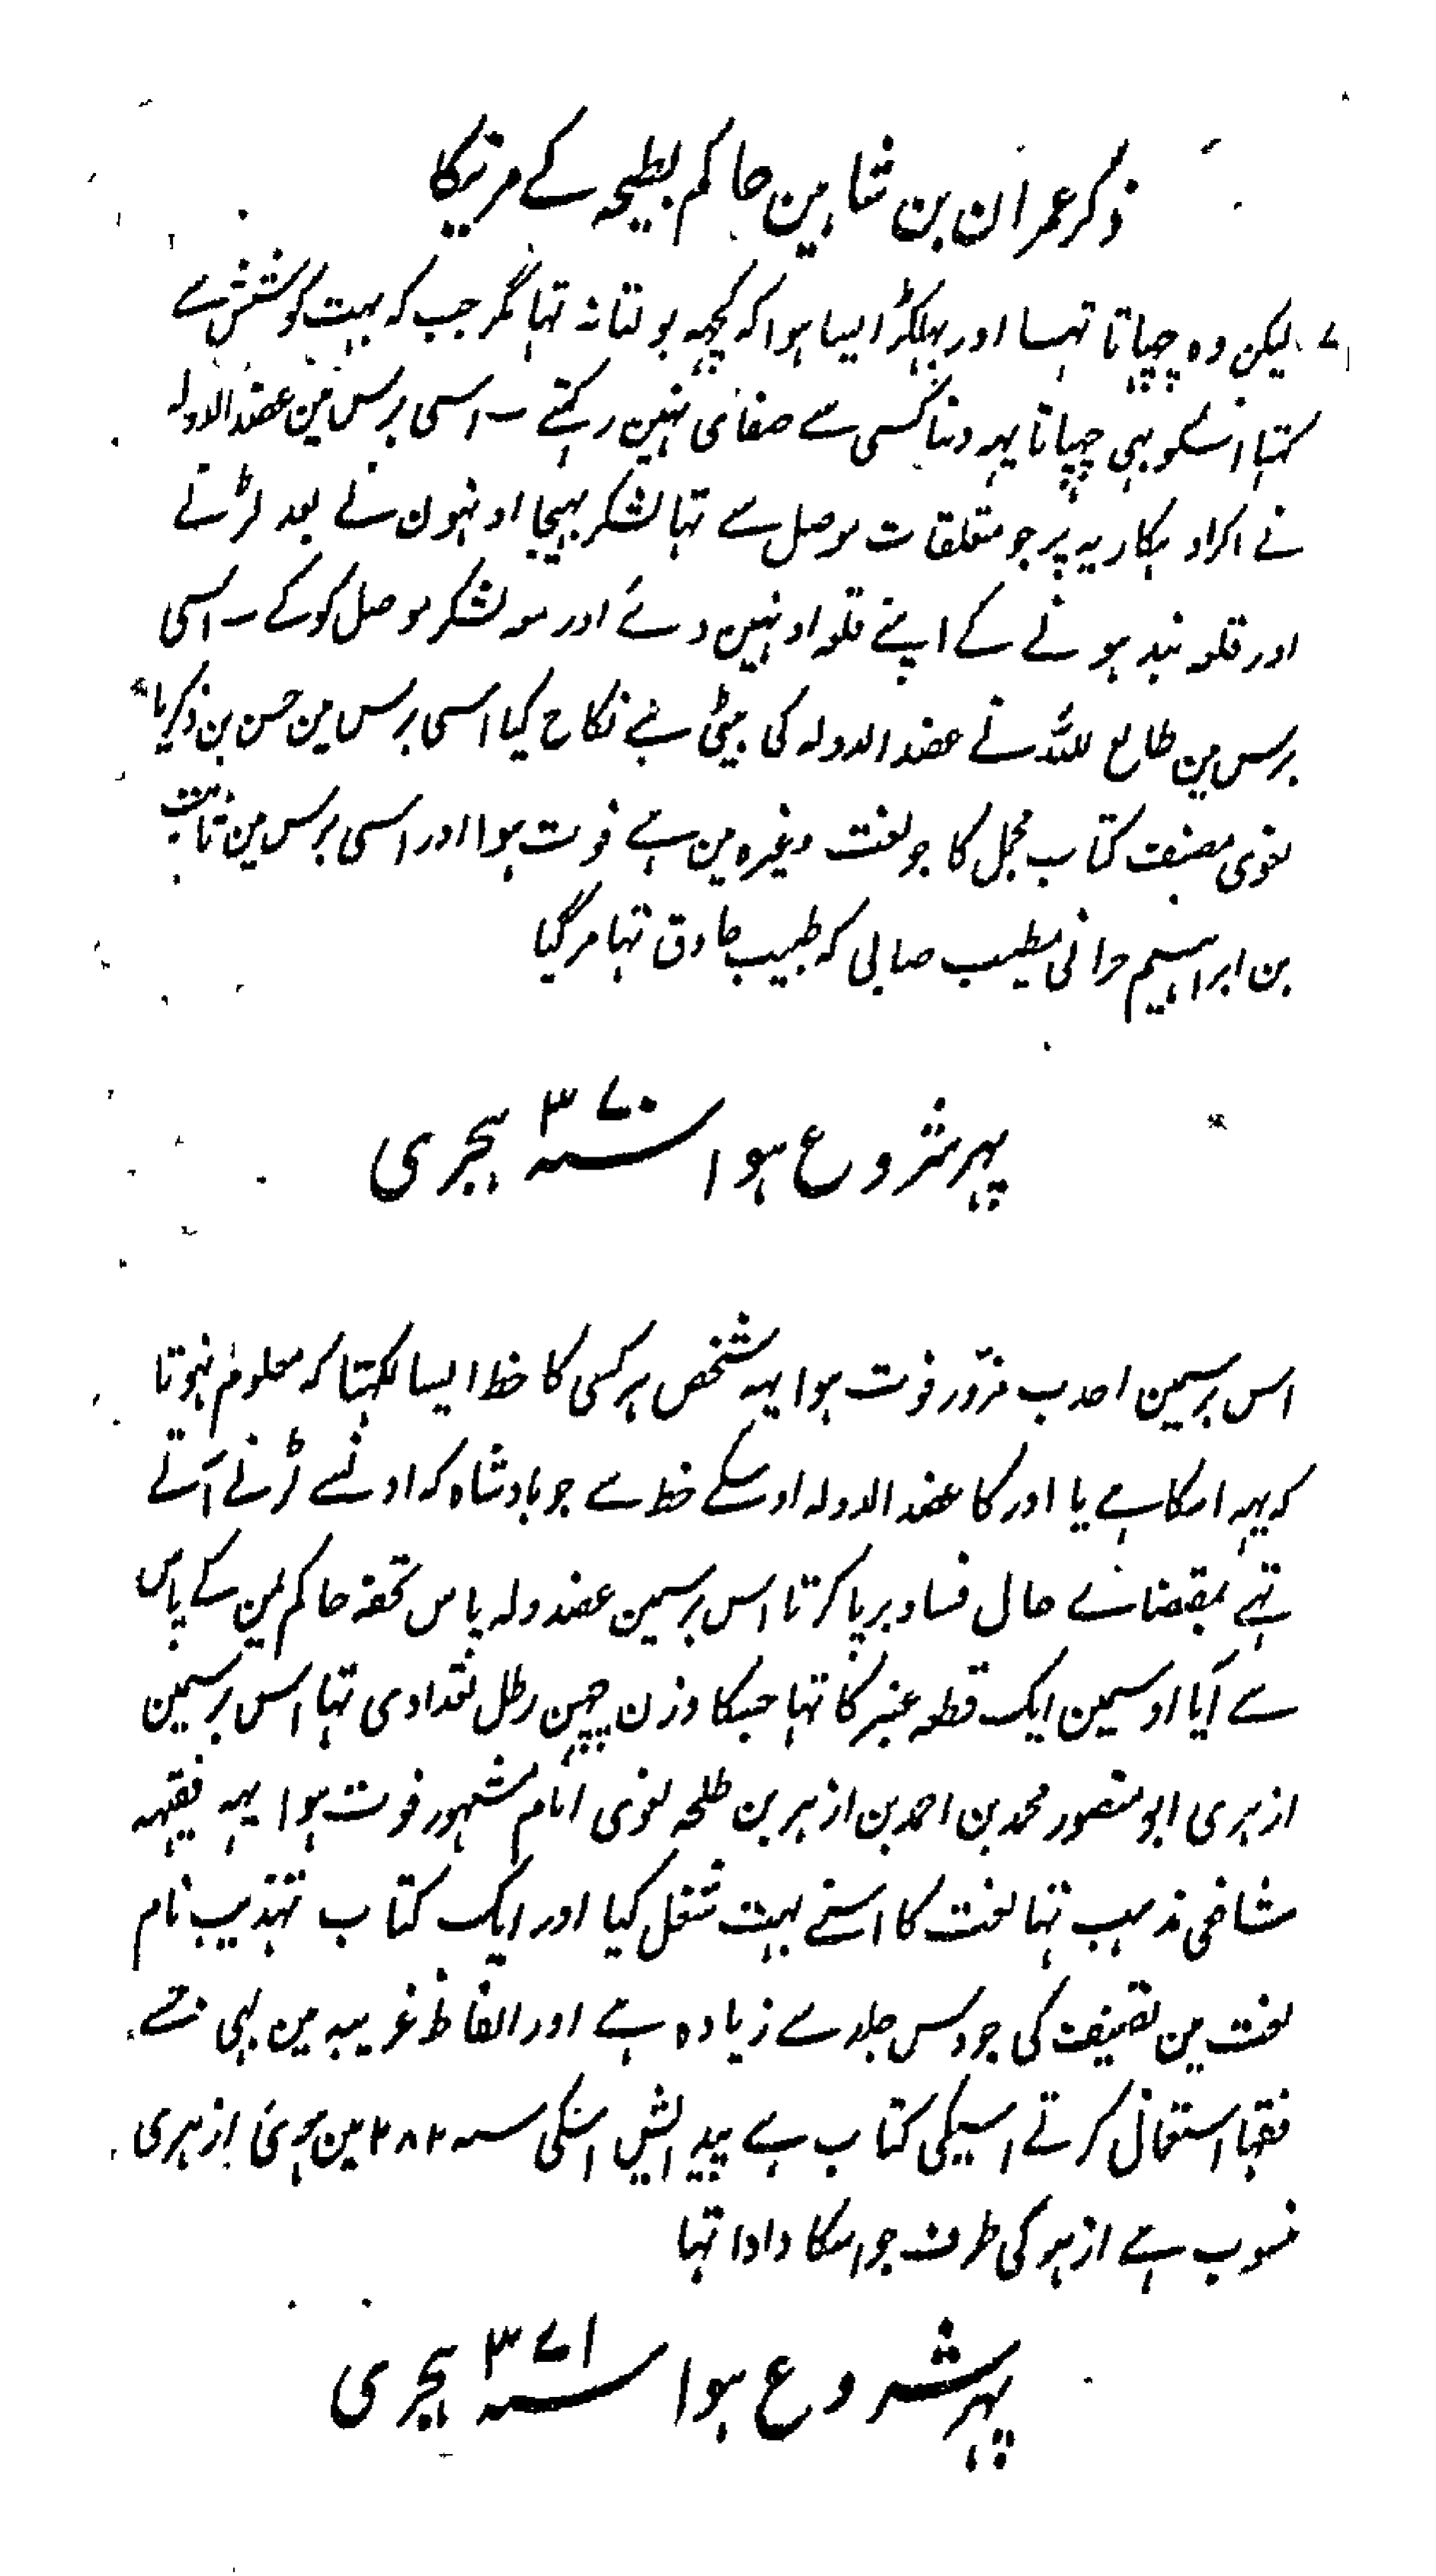 ذکر عمران بن شاہین حاکم بطیحہ کے مرنیکا
لیکن وہ چھپاتا تہا اور بہلکڑ ایسا ہوا کہ کچہہ بولتا نہ تہا مگر جب کہ بہت کوشش سے
کہتا اسکو بہی چھپاتا یہہ دنیا کسی سے صفائی نہین رکہتے ۔ اسی برس مین عضد الدولہ
نے اکراد ہکاریہ پر جو متعلقات موصل سے تہا لشکر بہیجا اونہون نے بعد لڑنے
اور قلعہ بند ہونے کے اپنے قلعہ اونہین دئے اور مع لشکر موصل کو گئے ۔ اسی
برس مین طایع للہ نے عضد الدولہ کی بیٹی سے نکاح کیا اسی برس مین حسن بن زکریا
لغوی مصنف کتاب مجمل کا جو لغت وغیرہ مین ہے فوت ہوا اور اسی برس مین ثابت
بن ابراہیم حرانی مطیب صابی کہ طبیب حاذق تہا مر گیا
پہر شروع ہوا سنہ ۳۷۰ ہجری
اس برسمین احدب مزوّر فوت ہوا یہہ شخص ہر کسی کا خط ایسا لکہتا کہ معلوم نہوتا
کہ یہہ اسکا ہے یا اور کا عضد الدولہ اوسکے خط سے جو بادشاہ کہ اونسے لڑنے آتے
تہے بمقتضائے حال فساد برپا کرتا اس برسمین عضد دولہ پاس تحفہ حاکم یمن کے پاس
سے آیا اوسمین ایک قطعہ عنبر کا تہا جسکا وزن چہپن رطل بغدادی تہا اس برسمین
ازہری ابو منصور محمد بن احمد بن ازہر بن طلحہ لغوی امام مشہور فوت ہوا یہہ فقیہہ
شافعی مذہب تہا لغت کا اسنے بہت شغل کیا اور ایک کتاب تہذیب نام
لغت مین تصنیف کی جو دس جلد سے زیادہ ہے اور الفاظ غریبہ مین بہی
فقہا استعمال کرتے اسیکی کتاب ہے پیدایش اسکی سنہ ۲۸۲ مین ہوئی ازہری
منسوب ہے ازہر کی طرف جو اسکا دادا تہا
پہر شروع ہوا سنہ ۳۷۱ ہجری